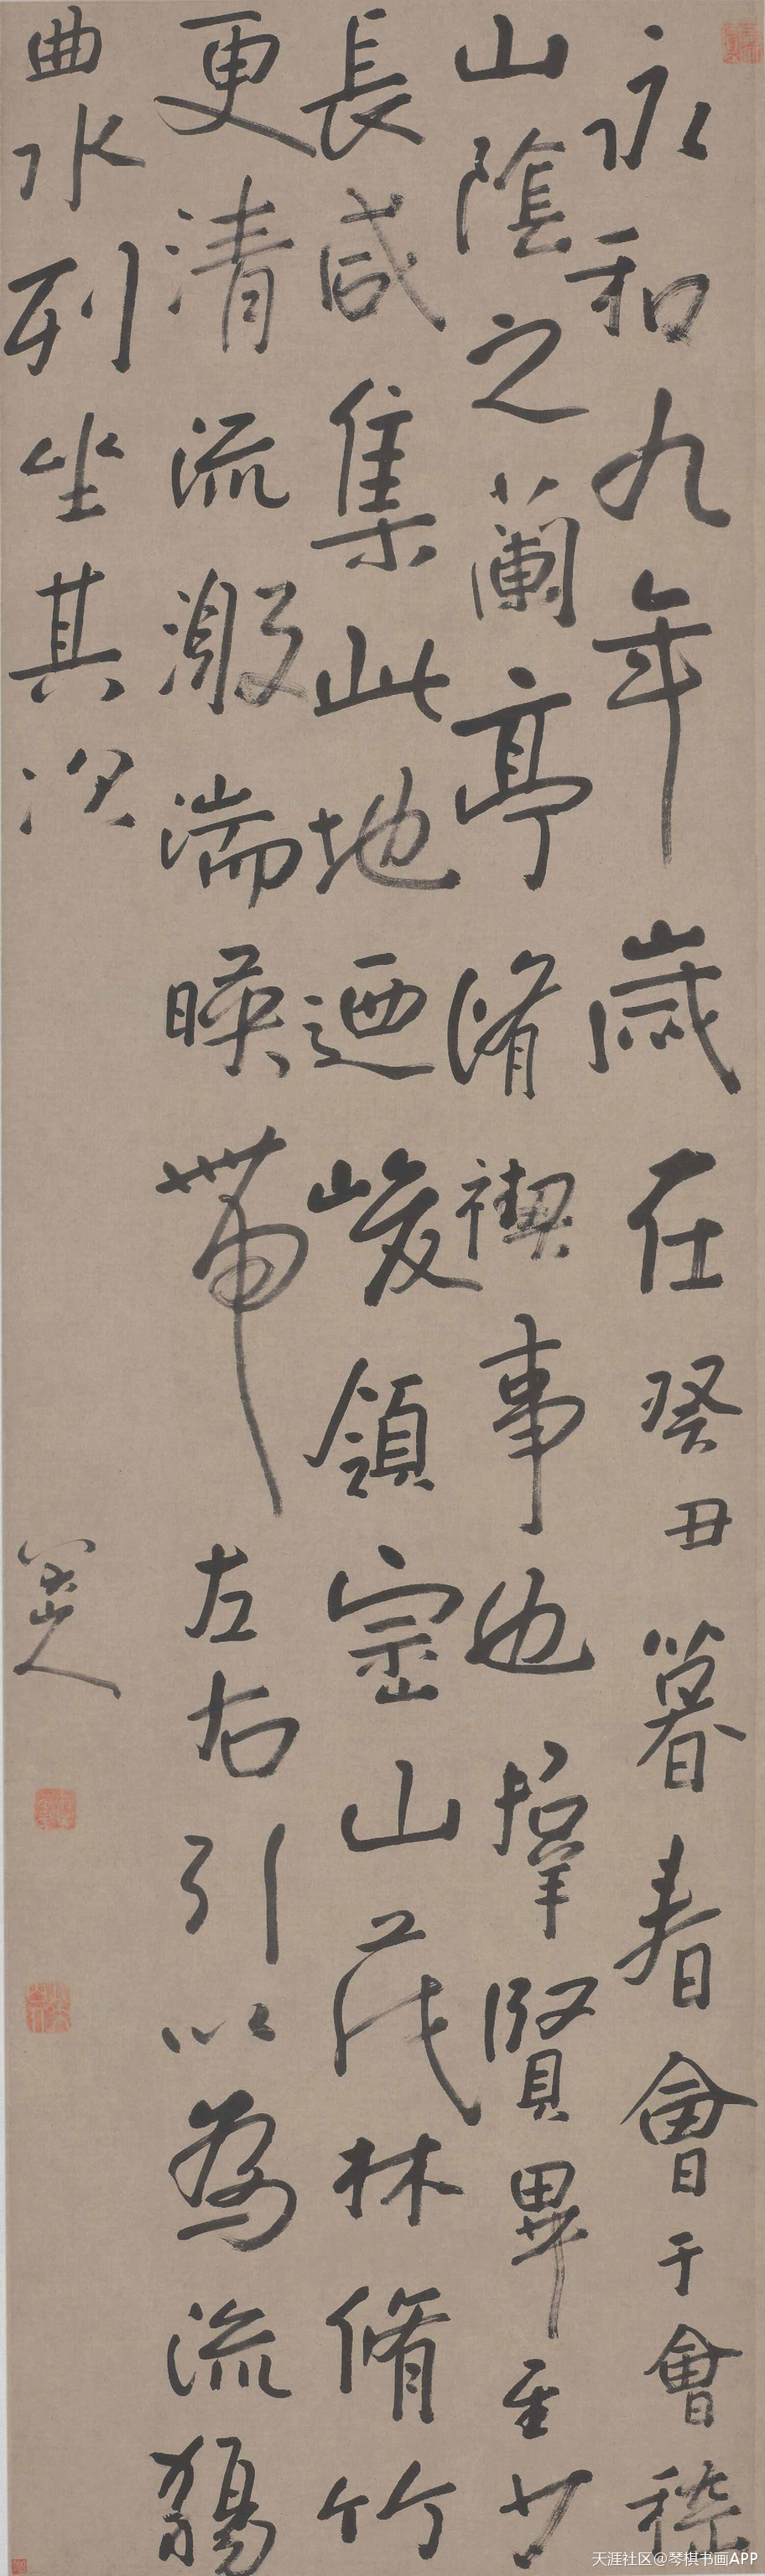 永和九年歲在癸丑暮春會于會稽
山陰之蘭亭脩禊事也羣賢畢至少
長咸集此地迺峻領崈山茂林脩竹
更清流激湍暎帶左右引以為流觴
曲水列坐其次
八大山人
天涯社区@琴棋书画APP